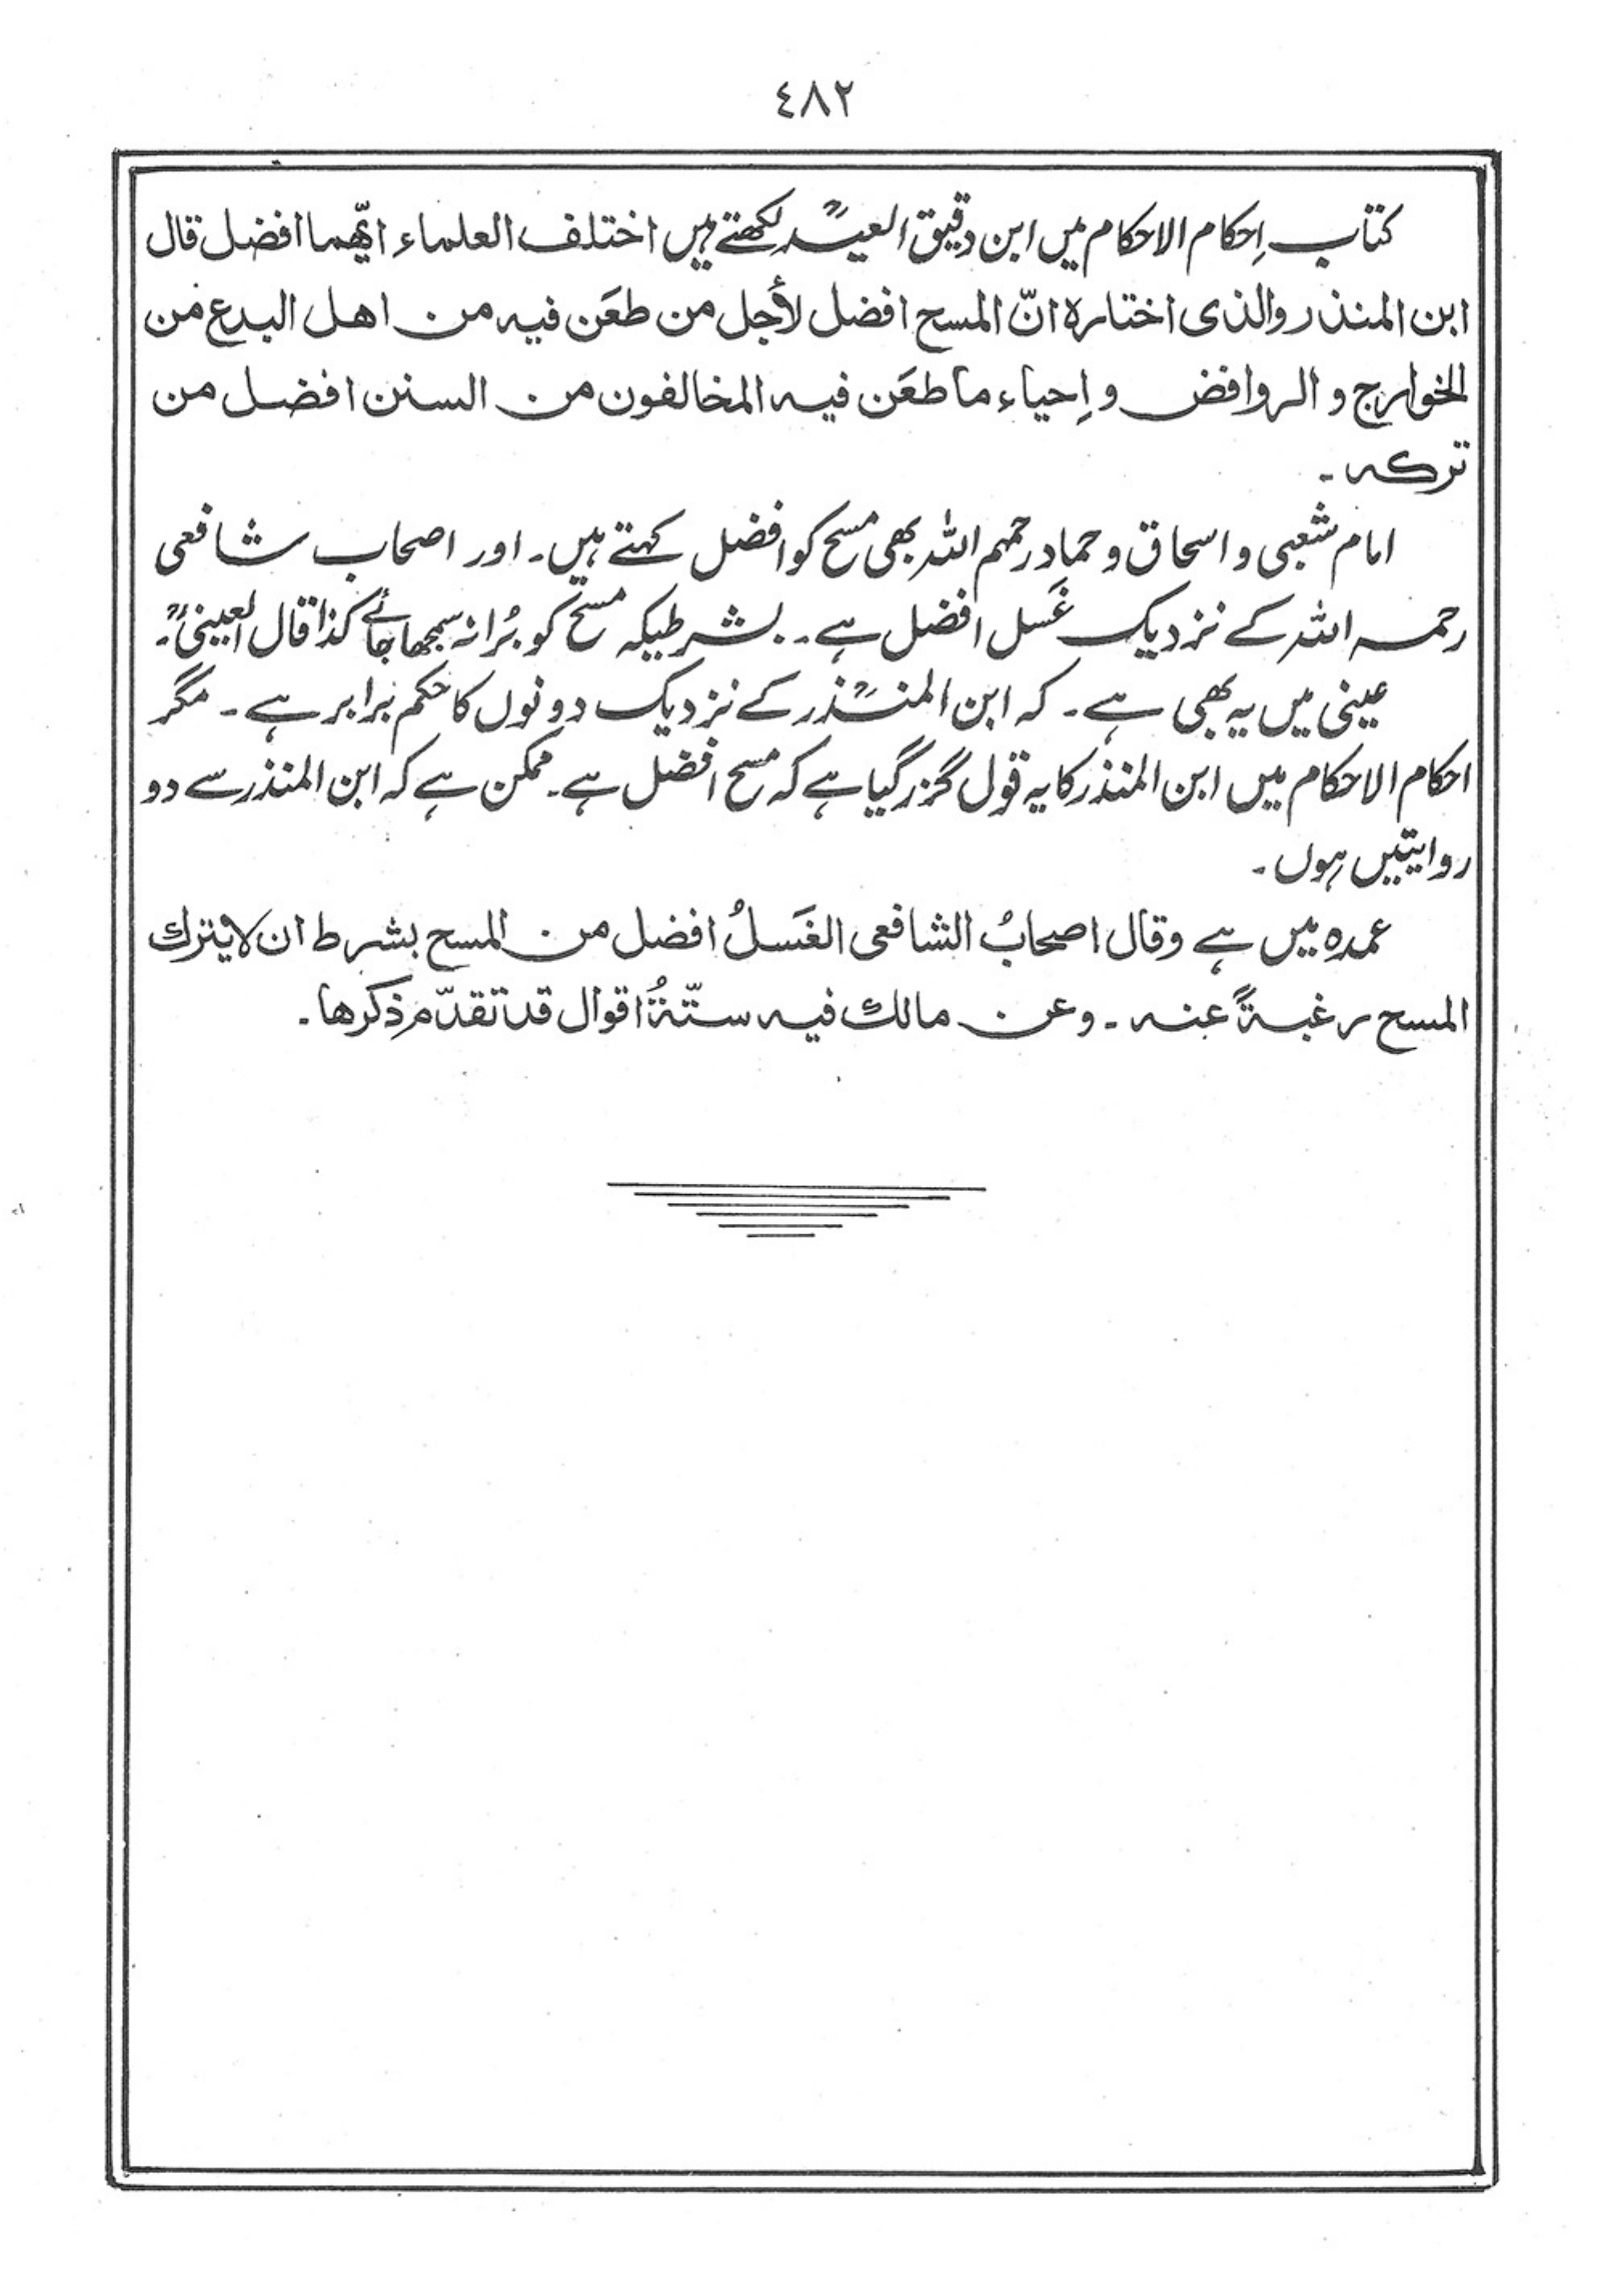 ٤٨٢
کتاب اِحکام الاحکام میں ابن دقیق العیدؒ لکھتے ہیں اختلف العلماء ایّھما افضل قال
ابن المنذر والذی اختارہ انّ المسح افضل لأجل من طعَن فیہ من اھل البدع من
الخوارج و الروافض و اِحیاء ما طعَن فیہ المخالفون من السنن افضل من
ترکہ ۔
امام شعبی و اسحاق و حماد رحمہم اللہ بھی مسح کو افضل کہتے ہیں۔ اور اصحاب شافعی
رحمہ اللہ کے نزدیک غَسل افضل ہے۔ بشرطیکہ مسح کو بُرا نہ سمجھا جائے کذا قال العینیؒ۔
عینی میں یہ بھی ہے۔ کہ ابن المنذرؒ کے نزدیک دونوں کا حکم برابر ہے۔ مگر
احکام الاحکام میں ابن المنذر کا یہ قول گزر گیا ہے کہ مسح افضل ہے۔ ممکن ہے کہ ابن المنذر سے دو
روایتیں ہوں۔
عمدہ میں ہے وقال اصحابُ الشافعی الغَسلُ افضل من المسح بشرط ان لا یترك
المسح رغبةً عنہ ۔ وعن مالك فیہ ستّةُ اقوال قد تقدّم ذِکرھا۔